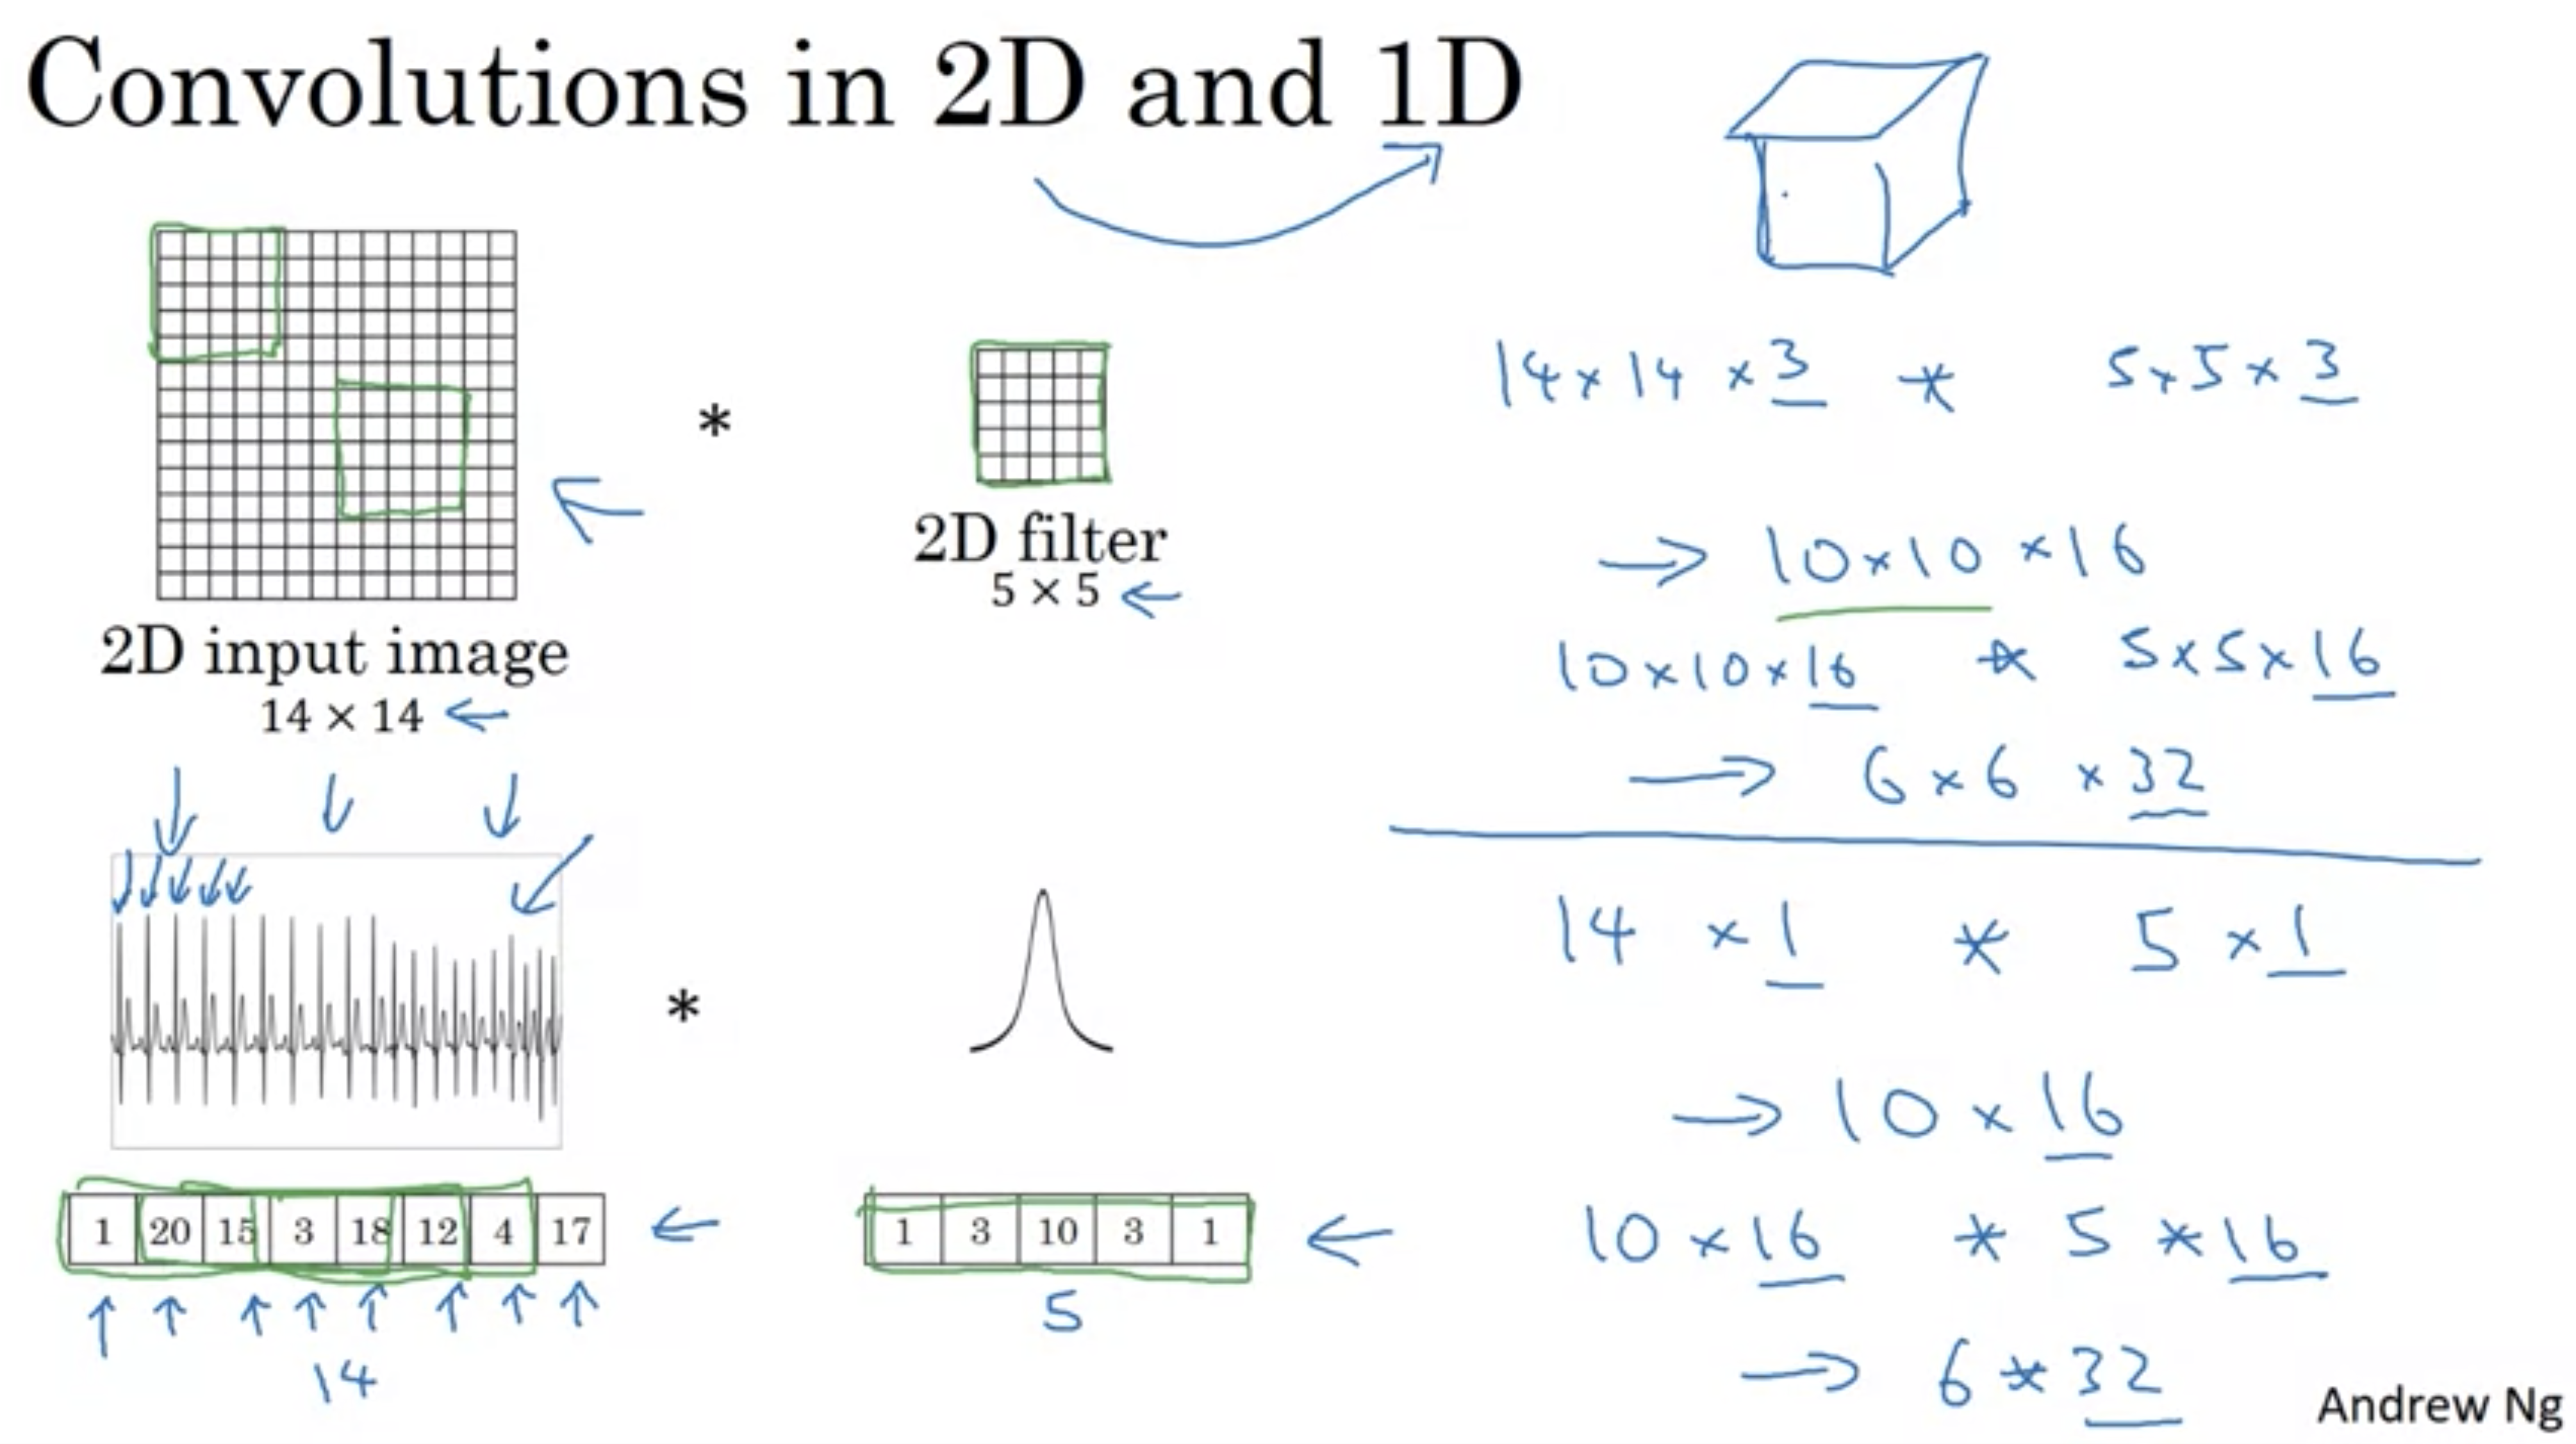 Convolutions in 2D and 1D
*
2D filter
5 × 5
2D input image
14 × 14
*
1 20 15 3 18 12 4 17
14
1 3 10 3 1
5
14 × 14 × 3 * 5 × 5 × 3
→ 10 × 10 × 16
10 × 10 × 16 * 5 × 5 × 16
→ 6 × 6 × 32
14 × 1 * 5 × 1
→ 10 × 16
10 × 16 * 5 * 16
→ 6 * 32
Andrew Ng